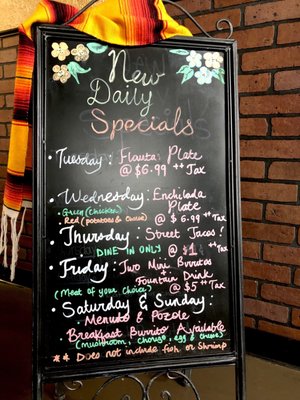 New
Daily
Specials
• Tuesday: Flauta Plate
@ $6.99 ++ Tax
• Wednesday: Enchilada
Plate
Green (Chicken)
Red (potatoes & cheese) @ $6.99 ++ Tax
• Thursday: Street Tacos!
@ DINE IN ONLY @ $1 ++ Tax
• Friday: Two Mini Burritos
(Meat of your Choice) + Fountain Drink
@ $5 ++ Tax
• Saturday & Sunday:
Menudo & Pozole
• Breakfast Burrito Available
(mushroom, chorizo, egg & cheese)
** Does not include fish or Shrimp